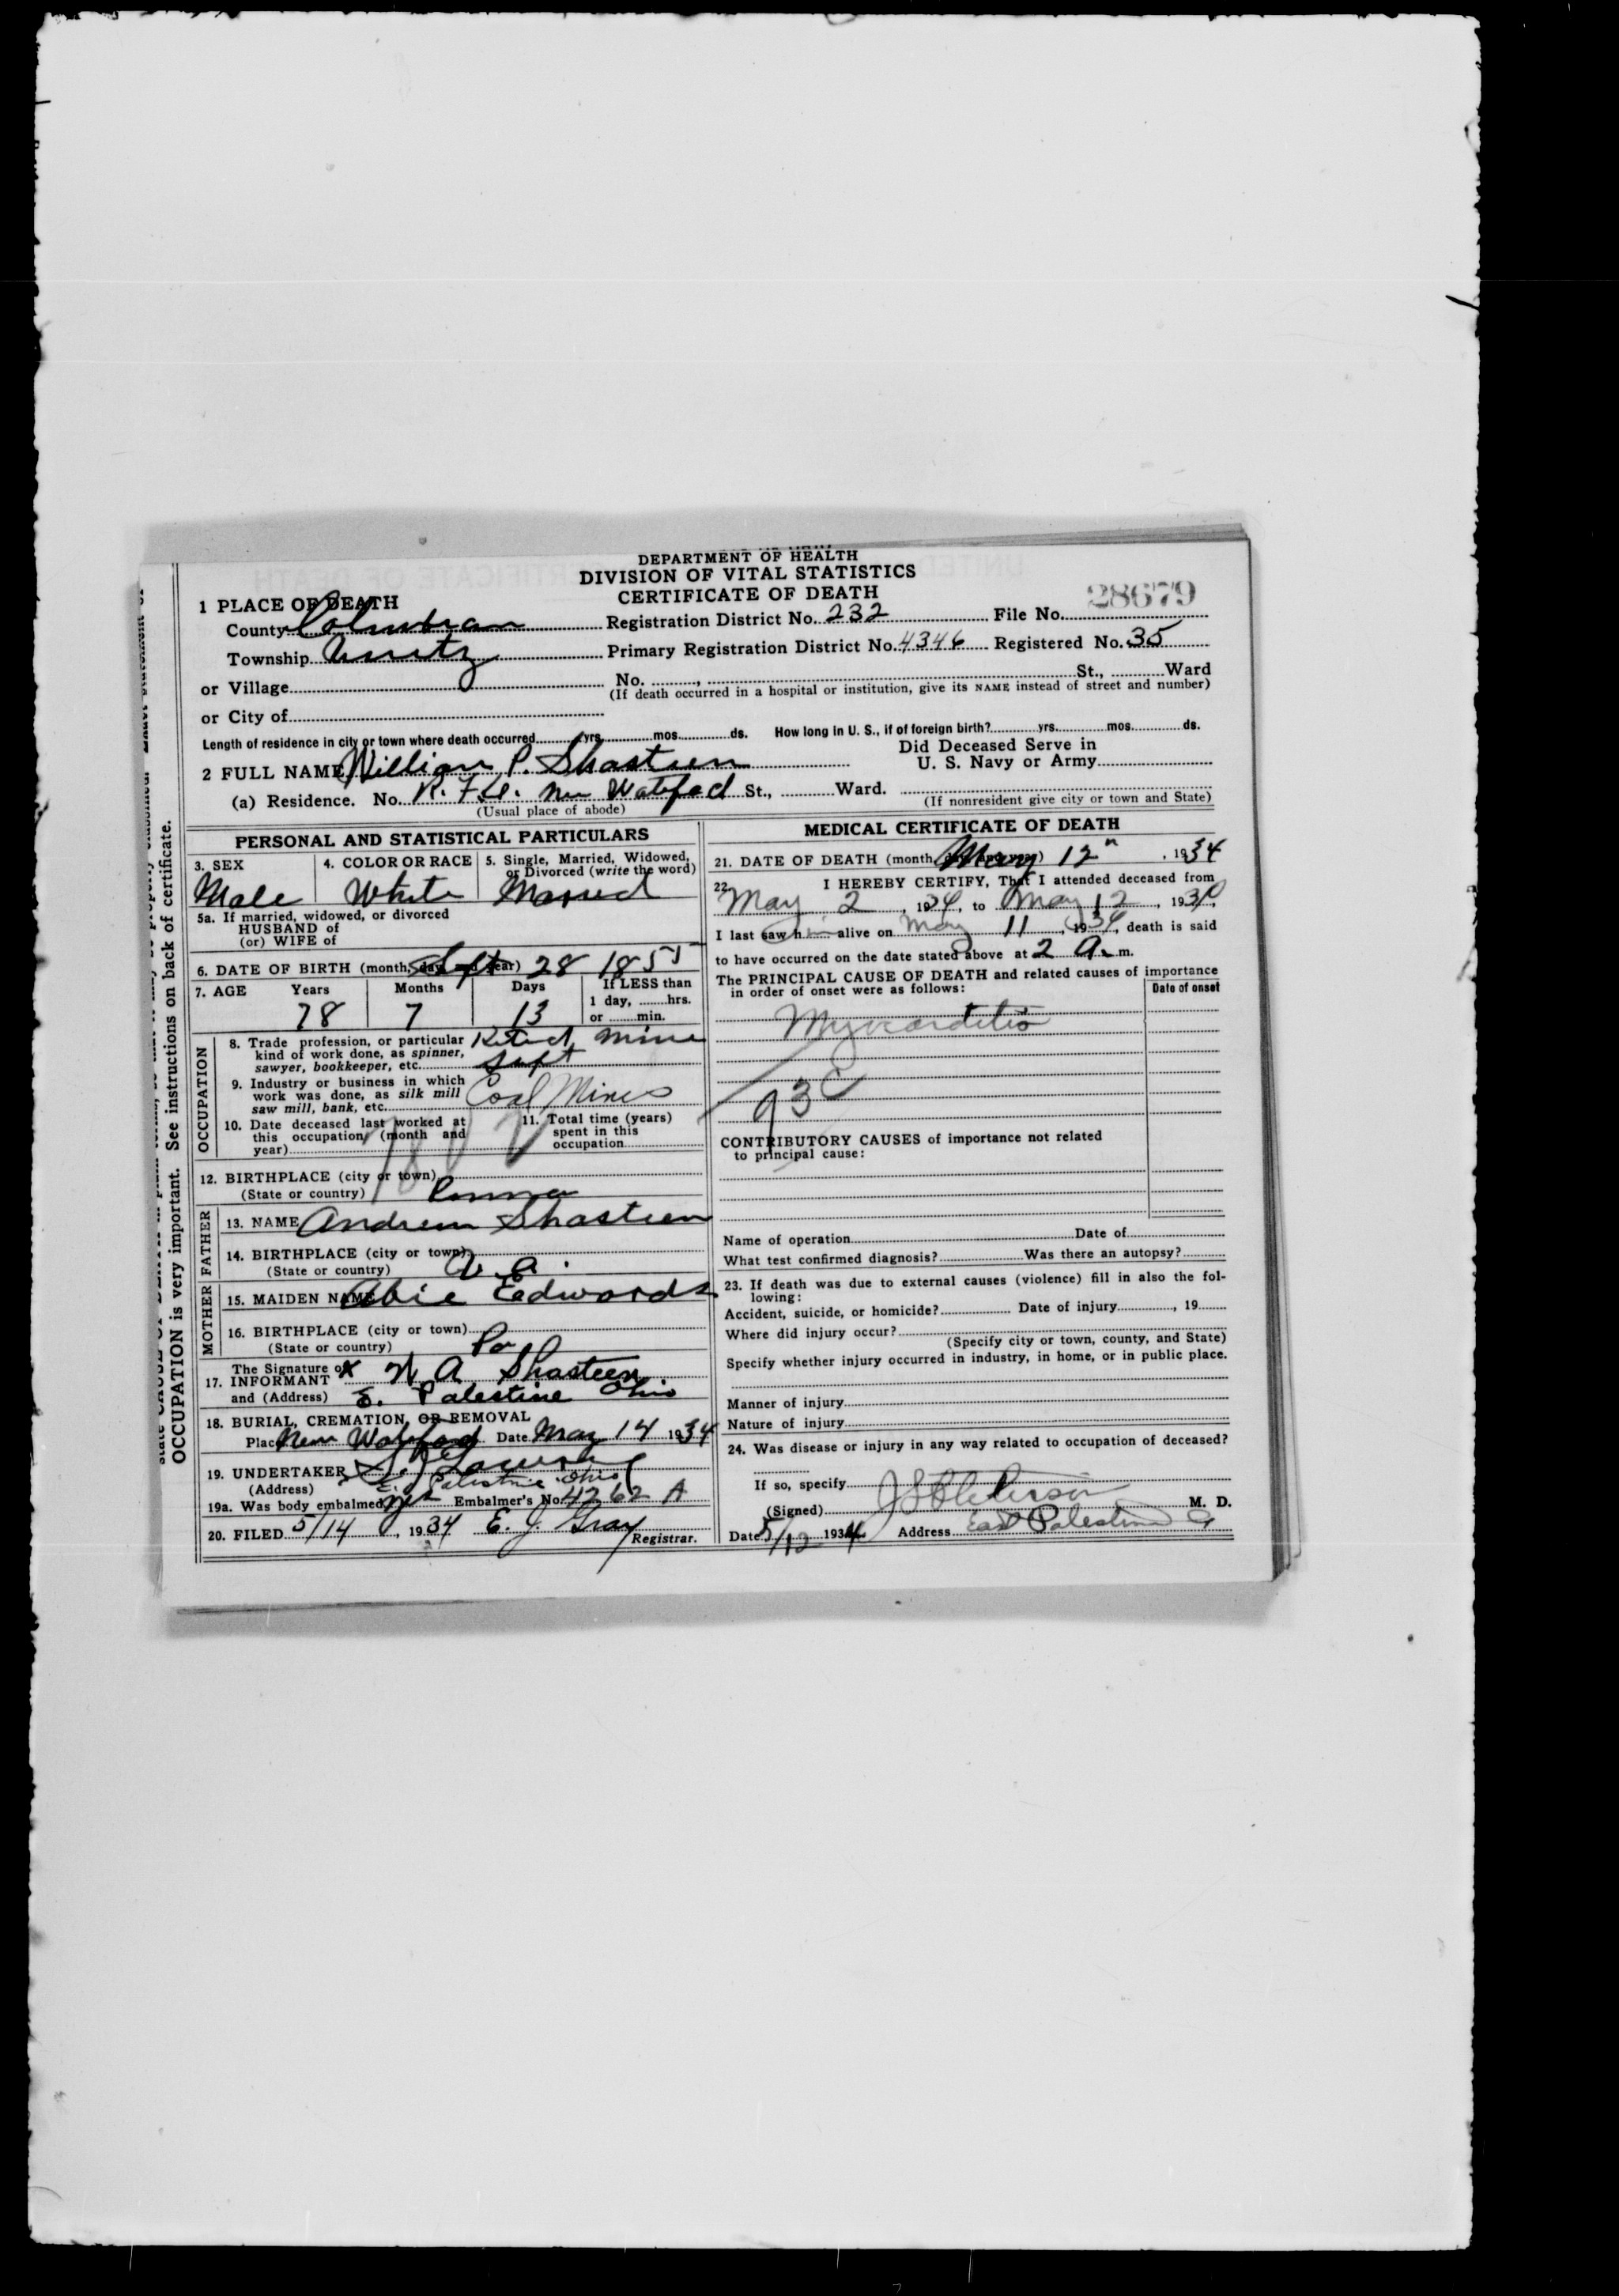 DEPARTMENT OF HEALTH
DIVISION OF VITAL STATISTICS
CERTIFICATE OF DEATH
28679
1 PLACE OF DEATH
County Columbian Registration District No. 232 File No.
Township Unity Primary Registration District No. 4346 Registered No. 35
or Village No. , St., Ward
(If death occurred in a hospital or institution, give its NAME instead of street and number)
or City of
Length of residence in city or town where death occurred yrs. mos. ds. How long in U. S., if of foreign birth? yrs. mos. ds.
2 FULL NAME William P. Shasteen Did Deceased Serve in U. S. Navy or Army
(a) Residence. No. R. F. D. New Watefod St., Ward.
(Usual place of abode) (If nonresident give city or town and State)
PERSONAL AND STATISTICAL PARTICULARS
3. SEX 4. COLOR OR RACE 5. Single, Married, Widowed, or Divorced (write the word)
Male White Married
5a. If married, widowed, or divorced
HUSBAND of
(or) WIFE of
6. DATE OF BIRTH (month, day, and year) Sept 28 1855
7. AGE Years Months Days If LESS than
1 day, hrs.
or min.
78 7 13
OCCUPATION
8. Trade profession, or particular kind of work done, as spinner, sawyer, bookkeeper, etc. Retired mine supt
9. Industry or business in which work was done, as silk mill saw mill, bank, etc. Coal Mines
10. Date deceased last worked at this occupation (month and year)
11. Total time (years) spent in this occupation
12. BIRTHPLACE (city or town)
(State or country) Penna
FATHER
13. NAME Andrew Shasteen
14. BIRTHPLACE (city or town)
(State or country) Va.
MOTHER
15. MAIDEN NAME Abie Eedwards
16. BIRTHPLACE (city or town)
(State or country) Pa
The Signature of
17. INFORMANT x W A Shasteen
and (Address) E. Palestine Ohio
18. BURIAL, CREMATION, OR REMOVAL
Place New Watefod Date May 14 1934
19. UNDERTAKER
(Address) E. Palestine Ohio
19a. Was body embalmed yes Embalmer's No. 4262 A
20. FILED 5/14, 1934 E. J. Gray
Registrar.
MEDICAL CERTIFICATE OF DEATH
21. DATE OF DEATH (month, day, and year) May 12, 1934
22. I HEREBY CERTIFY, That I attended deceased from
May 2, 1934, to May 12, 1934,
I last saw him alive on May 11, 1934, death is said
to have occurred on the date stated above at 2 A. m.
The PRINCIPAL CAUSE OF DEATH and related causes of importance in order of onset were as follows:
Date of onset
Myocarditis
93C
CONTRIBUTORY CAUSES of importance not related to principal cause:
Name of operation Date of
What test confirmed diagnosis? Was there an autopsy?
23. If death was due to external causes (violence) fill in also the following:
Accident, suicide, or homicide? Date of injury , 19
Where did injury occur?
(Specify city or town, county, and State)
Specify whether injury occurred in industry, in home, or in public place.
Manner of injury
Nature of injury
24. Was disease or injury in any way related to occupation of deceased?
If so, specify
(Signed) M. D.
Date 5/12 1934 Address East Palestine O
OCCUPATION is very important. See instructions on back of certificate.